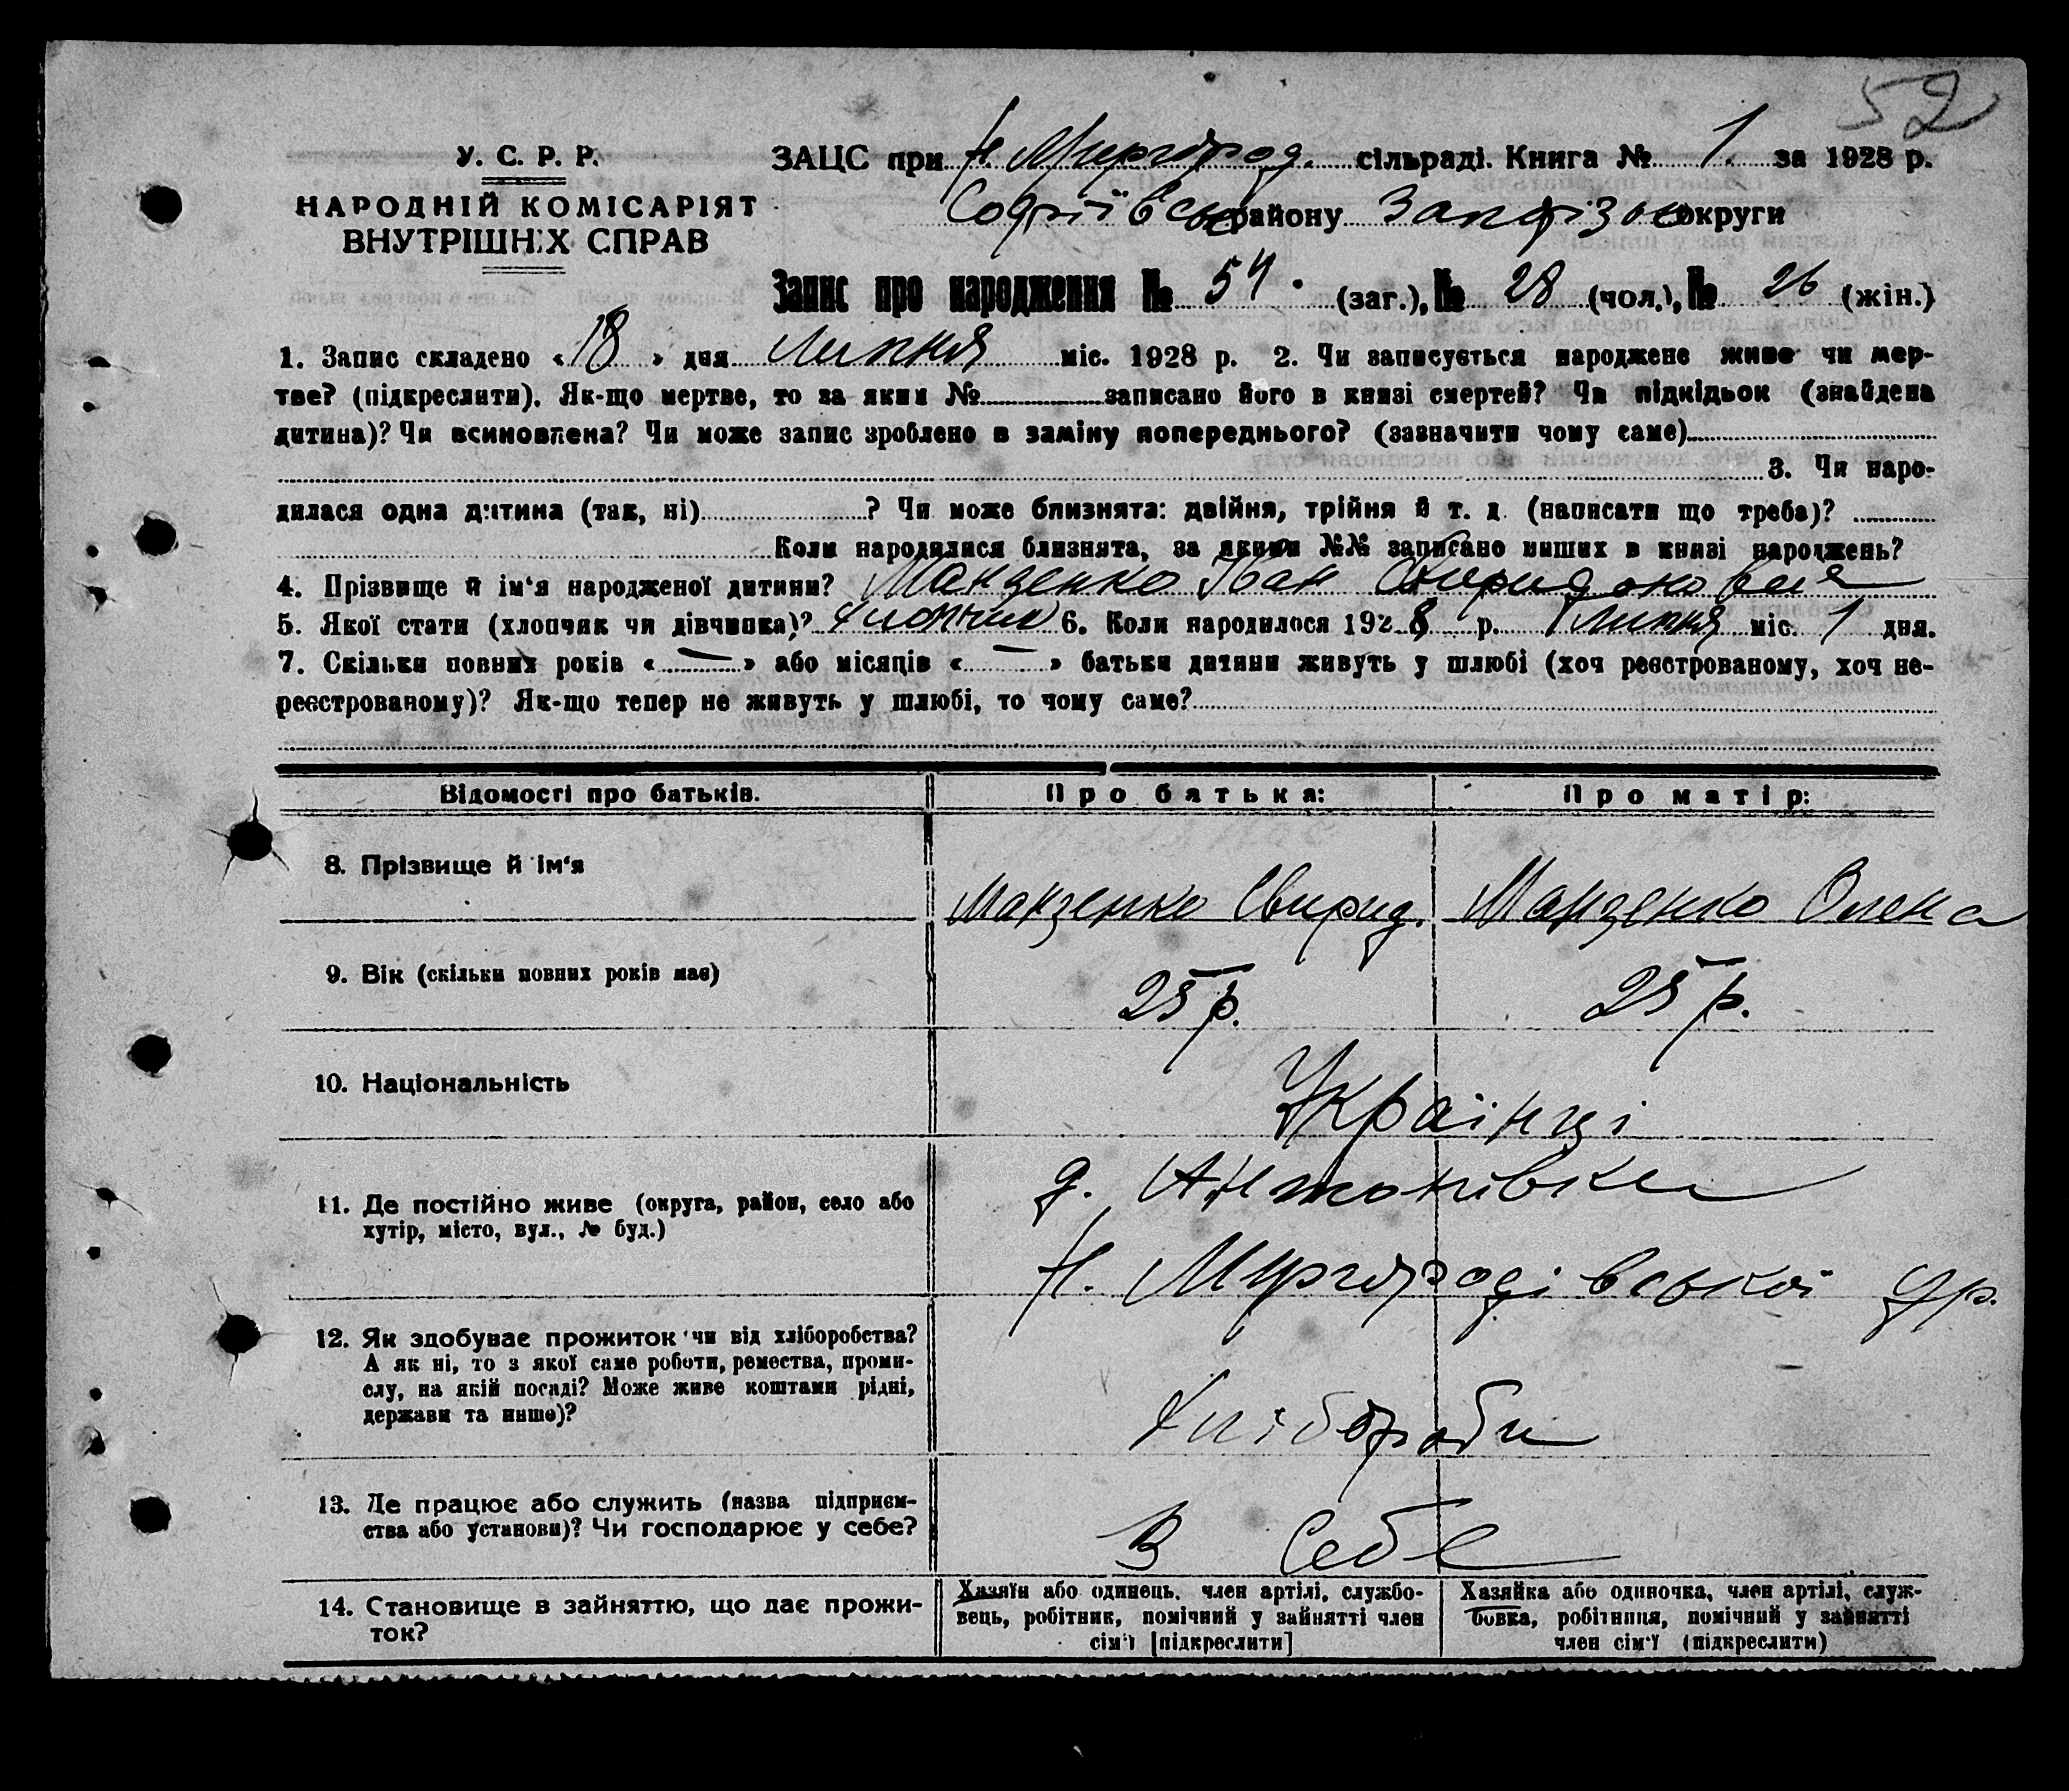 52
У. С. Р. Р.
НАРОДНІЙ КОМІСАРІЯТ
ВНУТРІШНІХ СПРАВ
ЗАЦС при Н. Миргород. сільраді. Книга № 1. за 1928 р.
Софіївськ району Запоріз округи
Запис про народження № 54. (заг.), № 28 (чол.), № 26 (жін.)
1. Запис складено «18» дня Липня міс. 1928 р. 2. Чи записується народжене живе чи мер-
тве? (підкреслити). Як-що мертве, то за яким № записано його в книзі смертей? Чи підкідьок (знайдена
дитина)? Чи всиновлена? Чи може запис зроблено в заміну попереднього? (зазначити чому саме)
3. Чи наро-
дилася одна дитина (так, ні) ? Чи може близнята: двійня, трійня й т. д. (написати що треба)?
Коли народилися близнята, за якими №№ записано инших в книзі народжень?
4. Прізвище й ім‘я народженої дитини? Манзенко Іван Свиридонович
5. Якої стати (хлопчик чи дівчинка)? хлопчик 6. Коли народилося 1928 р. Липня міс. 1 дня.
7. Скільки повних років « — » або місяців « — » батьки дитини живуть у шлюбі (хоч реєстрованому, хоч не-
реєстрованому)? Як-що тепер не живуть у шлюбі, то чому саме?
Відомості про батьків. Про батька: Про матір:
8. Прізвище й ім‘я Манзенко Свирид. Манзенко Олена
9. Вік (скільки повних років має) 25 р. 25 р.
10. Національність Українці
11. Де постійно живе (округа, район, село або
хутір, місто, вул., № буд.)
д. Антонівки
Н. Миргородівської
12. Як здобуває прожиток чи від хліборобства?
А як ні, то з якої саме роботи, ремества, проми-
слу, на якій посаді? Може живе коштами рідні,
держави та инше)?
Хлібороби
13. Де працює або служить (назва підприєм-
ства або установи)? Чи господарює у себе?
В Себе
14. Становище в зайняттю, що дає прожи-
ток?
Хазяїн або одинець, член артілі, службо-
вець, робітник, помічний у зайнятті член
сім‘ї [підкреслити]
Хазяйка або одиночка, член артілі, служ-
бовка, робітниця, помічний у зайнятті
член сім‘ї (підкреслити)